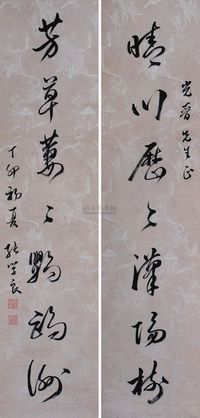 晴川歷〻漢陽樹
光晉先生正
芳草萋〻鸚鵡洲
丁卯初夏 張學良